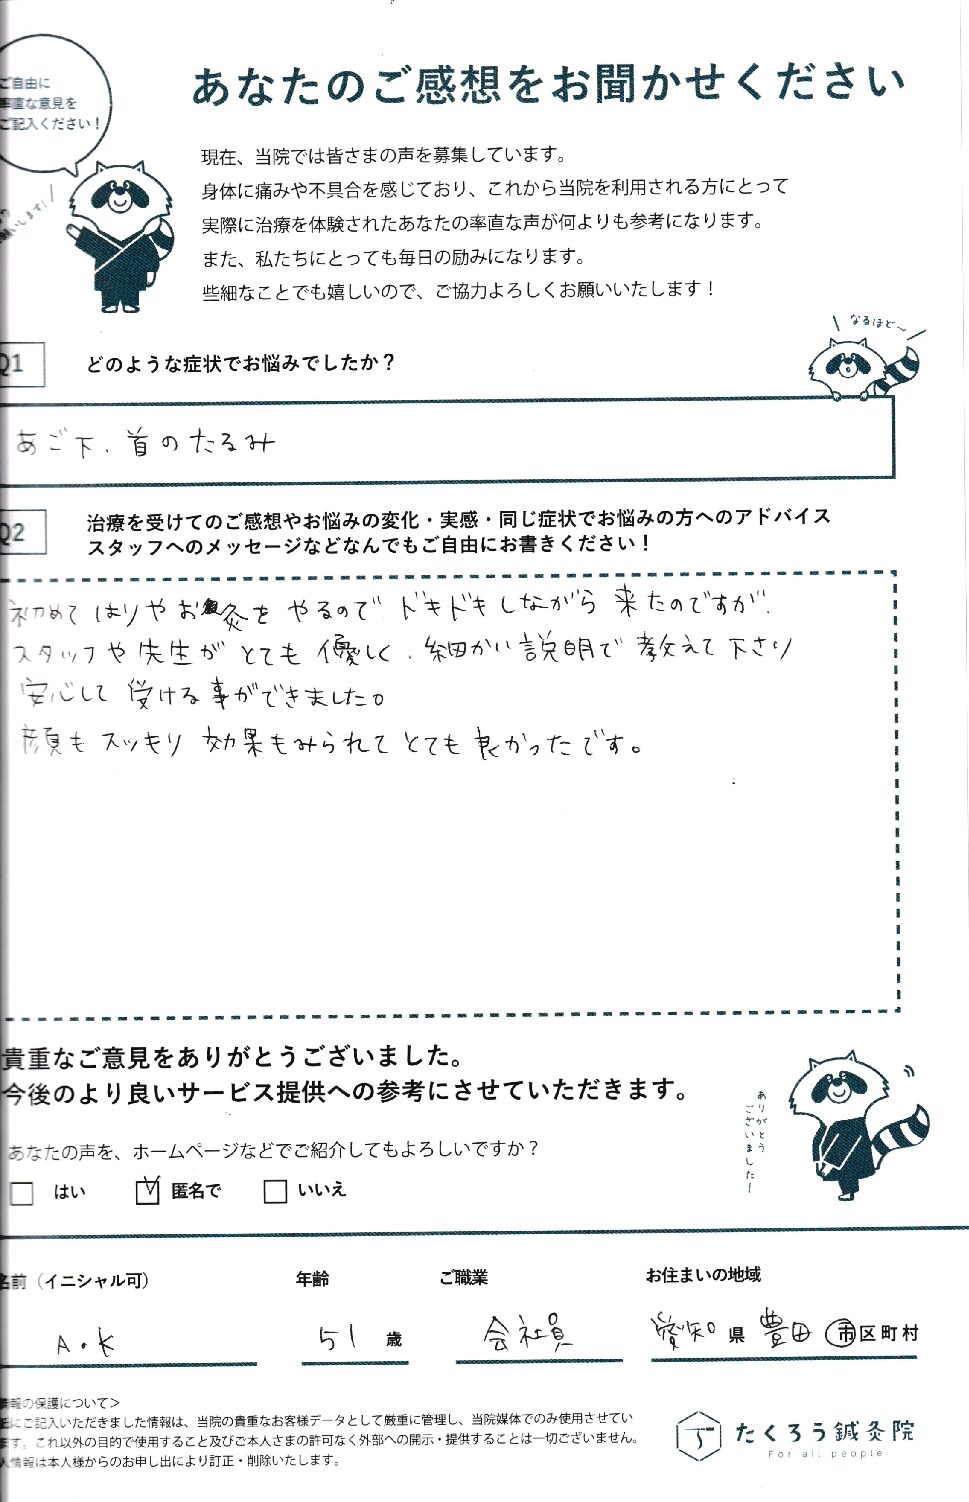 ご自由に
率直な意見を
ご記入ください！
あなたのご感想をお聞かせください
現在、当院では皆さまの声を募集しています。
身体に痛みや不具合を感じており、これから当院を利用される方にとって
実際に治療を体験されたあなたの率直な声が何よりも参考になります。
また、私たちにとっても毎日の励みになります。
些細なことでも嬉しいので、ご協力よろしくお願いいたします！
なるほど～
Q1
どのような症状でお悩みでしたか？
あご下、首のたるみ
Q2
治療を受けてのご感想やお悩みの変化・実感・同じ症状でお悩みの方へのアドバイス
スタッフへのメッセージなどなんでもご自由にお書きください！
初めてはりやお灸をやるのでドキドキしながら来たのですが、
スタッフや先生がとても優しく、細かい説明で教えて下さり
安心して受ける事ができました。
顔もスッキリ効果もみられてとても良かったです。
貴重なご意見をありがとうございました。
今後のより良いサービス提供への参考にさせていただきます。
ありがとう
ございました！
あなたの声を、ホームページなどでご紹介してもよろしいですか？
はい
匿名で
いいえ
名前（イニシャル可）
年齢
ご職業
お住まいの地域
A.K
51 歳
会社員
愛知 県 豊田 市区町村
情報の保護について＞
にご記入いただきました情報は、当院の貴重なお客様データとして厳重に管理し、当院媒体でのみ使用させてい
ます。これ以外の目的で使用すること及びご本人さまの許可なく外部への開示・提供することは一切ございません。
人情報は本人様からのお申し出により訂正・削除いたします。
たくろう鍼灸院
For all people